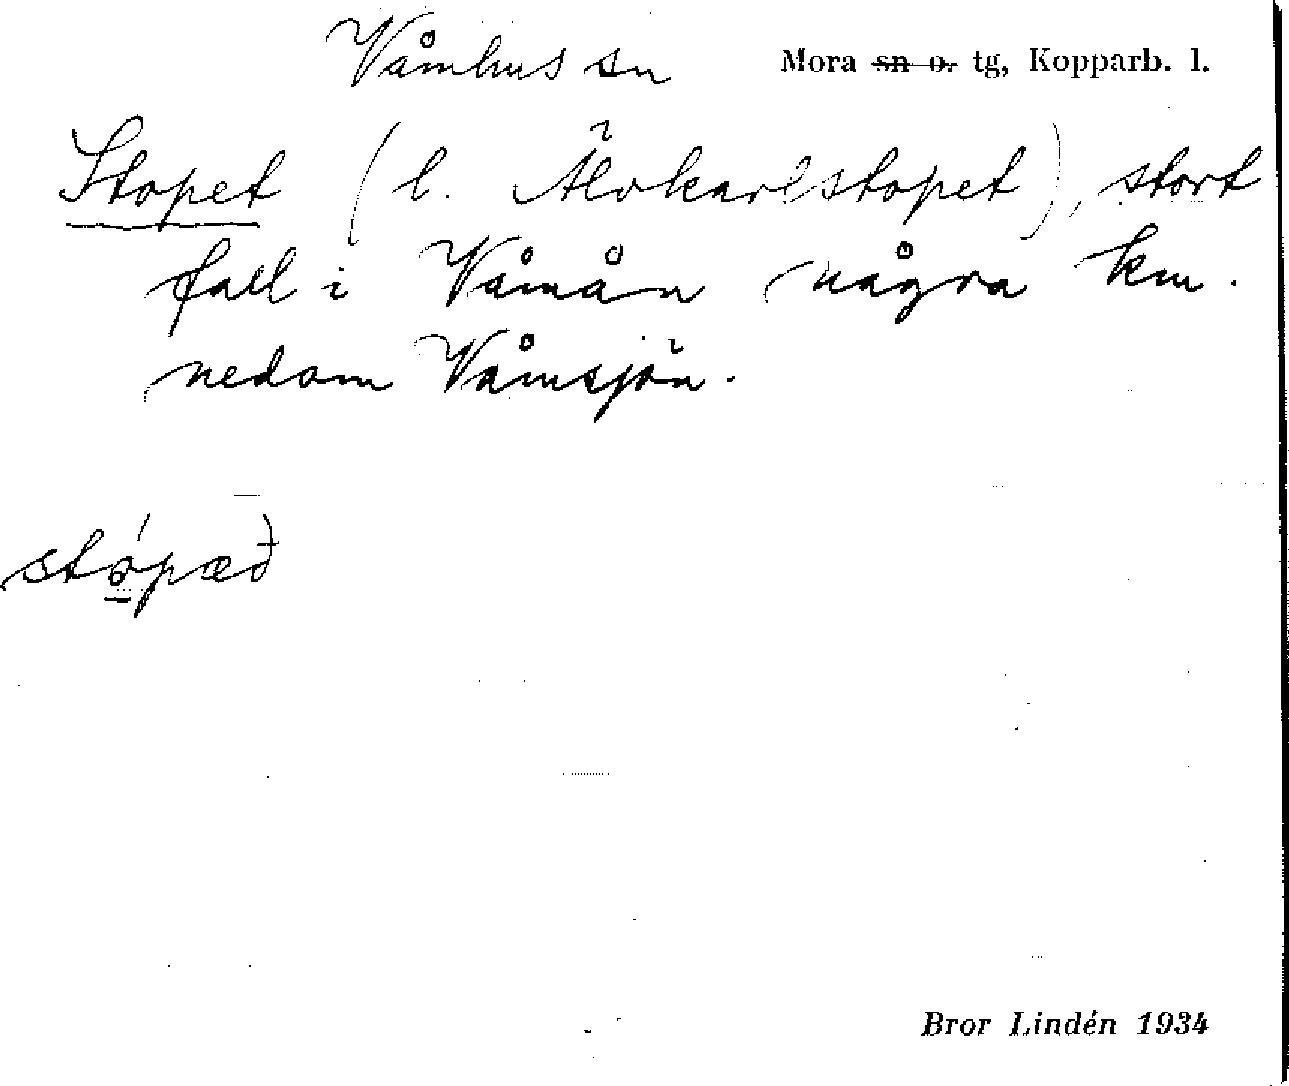 Våmhus sn Mora sn o. tg, Kopparb. l.
Stopet (l. Älvkarlstopet), stort
fall i Våmån några km.
nedom Våmsjön.
stó̱pæð
Bror Lindén 1934